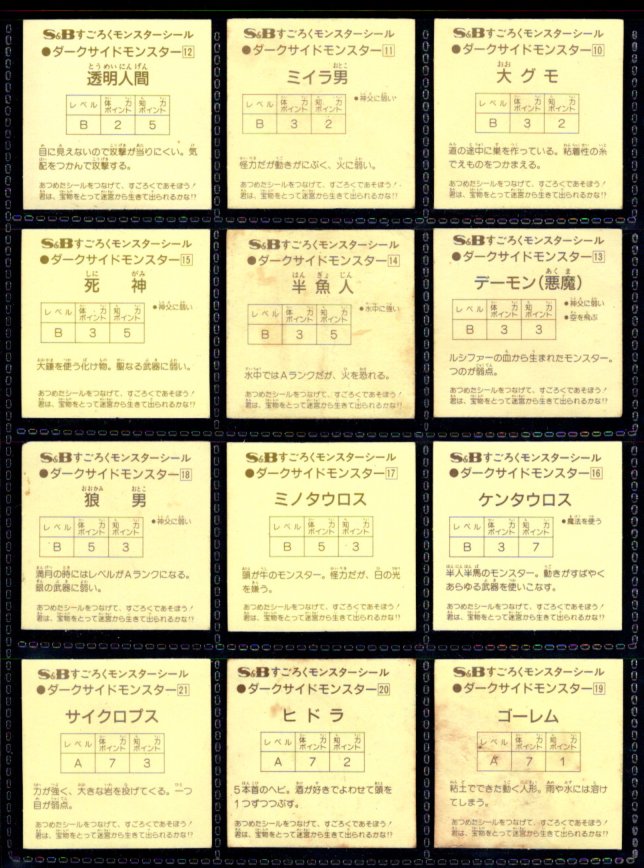 S&Bすごろくモンスターシール
●ダークサイドモンスター12
とうめいにんげん
透明人間
レベル 体力ポイント 知力ポイント
B 2 5
目に見えないので攻撃が当りにくい。気
配をつかんで攻撃する。
あつめたシールをつなげて、すごろくであそぼう!
君は、宝物をとって迷宮から生きて出られるかな!?
S&Bすごろくモンスターシール
●ダークサイドモンスター11
おとこ
ミイラ男
●神父に弱い
レベル 体力ポイント 知力ポイント
B 3 2
怪力だが動きがにぶく、火に弱い。
あつめたシールをつなげて、すごろくであそぼう!
君は、宝物をとって迷宮から生きて出られるかな!?
S&Bすごろくモンスターシール
●ダークサイドモンスター10
おお
大グモ
レベル 体力ポイント 知力ポイント
B 3 2
道の途中に巣を作っている。粘着性の糸
でえものをつかまえる。
あつめたシールをつなげて、すごろくであそぼう!
君は、宝物をとって迷宮から生きて出られるかな!?
S&Bすごろくモンスターシール
●ダークサイドモンスター15
しに がみ
死神
レベル 体力ポイント 知力ポイント
B 3 5
大鎌を使う化け物。聖なる武器に弱い。
あつめたシールをつなげて、すごろくであそぼう!
君は、宝物をとって迷宮から生きて出られるかな!?
S&Bすごろくモンスターシール
●ダークサイドモンスター14
はん ぎょ じん
半魚人
●水中に強い
レベル 体力ポイント 知力ポイント
B 3 5
水中ではAランクだが、火を恐れる。
あつめたシールをつなげて、すごろくであそぼう!
君は、宝物をとって迷宮から生きて出られるかな!?
S&Bすごろくモンスターシール
●ダークサイドモンスター13
あくま
デーモン(悪魔)
●神父に弱い
●空を飛ぶ
レベル 体力ポイント 知力ポイント
B 3 3
ルシファーの血から生まれたモンスター。
つのが弱点。
あつめたシールをつなげて、すごろくであそぼう!
君は、宝物をとって迷宮から生きて出られるかな!?
S&Bすごろくモンスターシール
●ダークサイドモンスター18
おおかみ おとこ
狼男
●神父に弱い
レベル 体力ポイント 知力ポイント
B 5 3
満月の時にはレベルがAランクになる。
銀の武器に弱い。
あつめたシールをつなげて、すごろくであそぼう!
君は、宝物をとって迷宮から生きて出られるかな!?
S&Bすごろくモンスターシール
●ダークサイドモンスター17
ミノタウロス
レベル 体力ポイント 知力ポイント
B 5 3
頭が牛のモンスター。怪力だが、日の光
を嫌う。
あつめたシールをつなげて、すごろくであそぼう!
君は、宝物をとって迷宮から生きて出られるかな!?
S&Bすごろくモンスターシール
●ダークサイドモンスター16
ケンタウロス
●魔法を使う
レベル 体力ポイント 知力ポイント
B 3 7
半人半馬のモンスター。動きがすばやく
あらゆる武器を使いこなす。
あつめたシールをつなげて、すごろくであそぼう!
君は、宝物をとって迷宮から生きて出られるかな!?
S&Bすごろくモンスターシール
●ダークサイドモンスター21
サイクロプス
レベル 体力ポイント 知力ポイント
A 7 3
力が強く、大きな岩を投げてくる。一つ
目が弱点。
あつめたシールをつなげて、すごろくであそぼう!
君は、宝物をとって迷宮から生きて出られるかな!?
S&Bすごろくモンスターシール
●ダークサイドモンスター20
ヒドラ
レベル 体力ポイント 知力ポイント
A 7 2
5本首のヘビ。酒が好きでよわせて頭を
1つずつつぶす。
あつめたシールをつなげて、すごろくであそぼう!
君は、宝物をとって迷宮から生きて出られるかな!?
S&Bすごろくモンスターシール
●ダークサイドモンスター19
ゴーレム
レベル 体力ポイント 知力ポイント
A 7 1
粘土でできた動く人形。雨や水には溶け
てしまう。
あつめたシールをつなげて、すごろくであそぼう!
君は、宝物をとって迷宮から生きて出られるかな!?